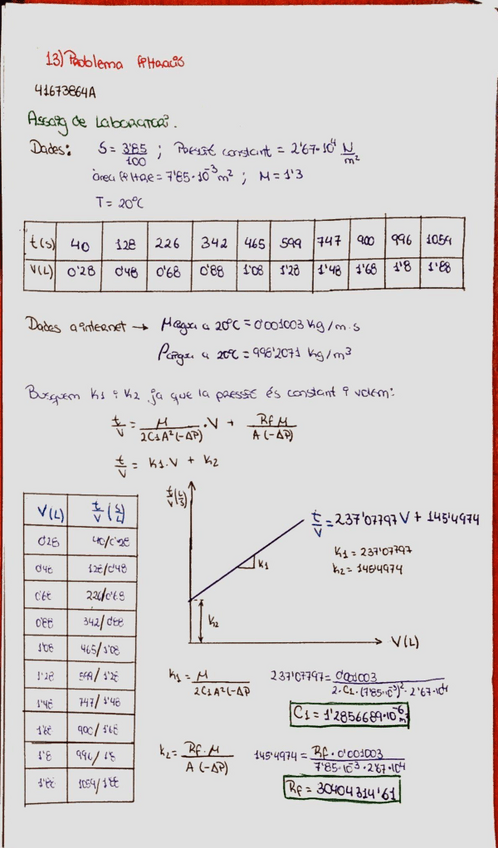 13) Problema filtració
41673864A
Assaig de Laboratori.
Dades: S = 3'85/100 ; Pressió constant = 2'67·10⁴ N/m²
àrea filtre = 7'85·10⁻³ m² ; M = 1'3
T = 20ºC
t(s) 40 128 226 342 465 599 747 900 996 1059
V(L) 0'28 0'48 0'68 0'88 1'08 1'28 1'48 1'68 1'8 1'88
Dades a internet → μaigua a 20ºC = 0'001003 kg/m·s
ρaigua a 20ºC = 998'2071 kg/m³
Busquem K1 i K2, ja que la pressió és constant i volem:
t/V = μ/2C1A²(-ΔP) · V + Rf μ/A(-ΔP)
t/V = K1·V + K2
V(L) t/V (s/L)
0'28 40/0'28
0'48 128/0'48
0'68 226/0'68
0'88 342/0'88
1'08 465/1'08
1'28 599/1'28
1'48 747/1'48
1'68 900/1'68
1'8 996/1'8
1'88 1059/1'88
t/V (s/L)
t/V = 237'07797 V + 145'4974
K1 = 237'07797
K2 = 145'4974
K1
K2
V(L)
K1 = μ/2C1A²(-ΔP) 237'07797 = 0'001003/2·C1·(7'85·10⁻³)²·2'67·10⁴
C1 = 1'2856689·10⁻⁶
K2 = Rf·μ/A(-ΔP) 145'4974 = Rf·0'001003/7'85·10⁻³·2'67·10⁴
Rf = 30404314'61